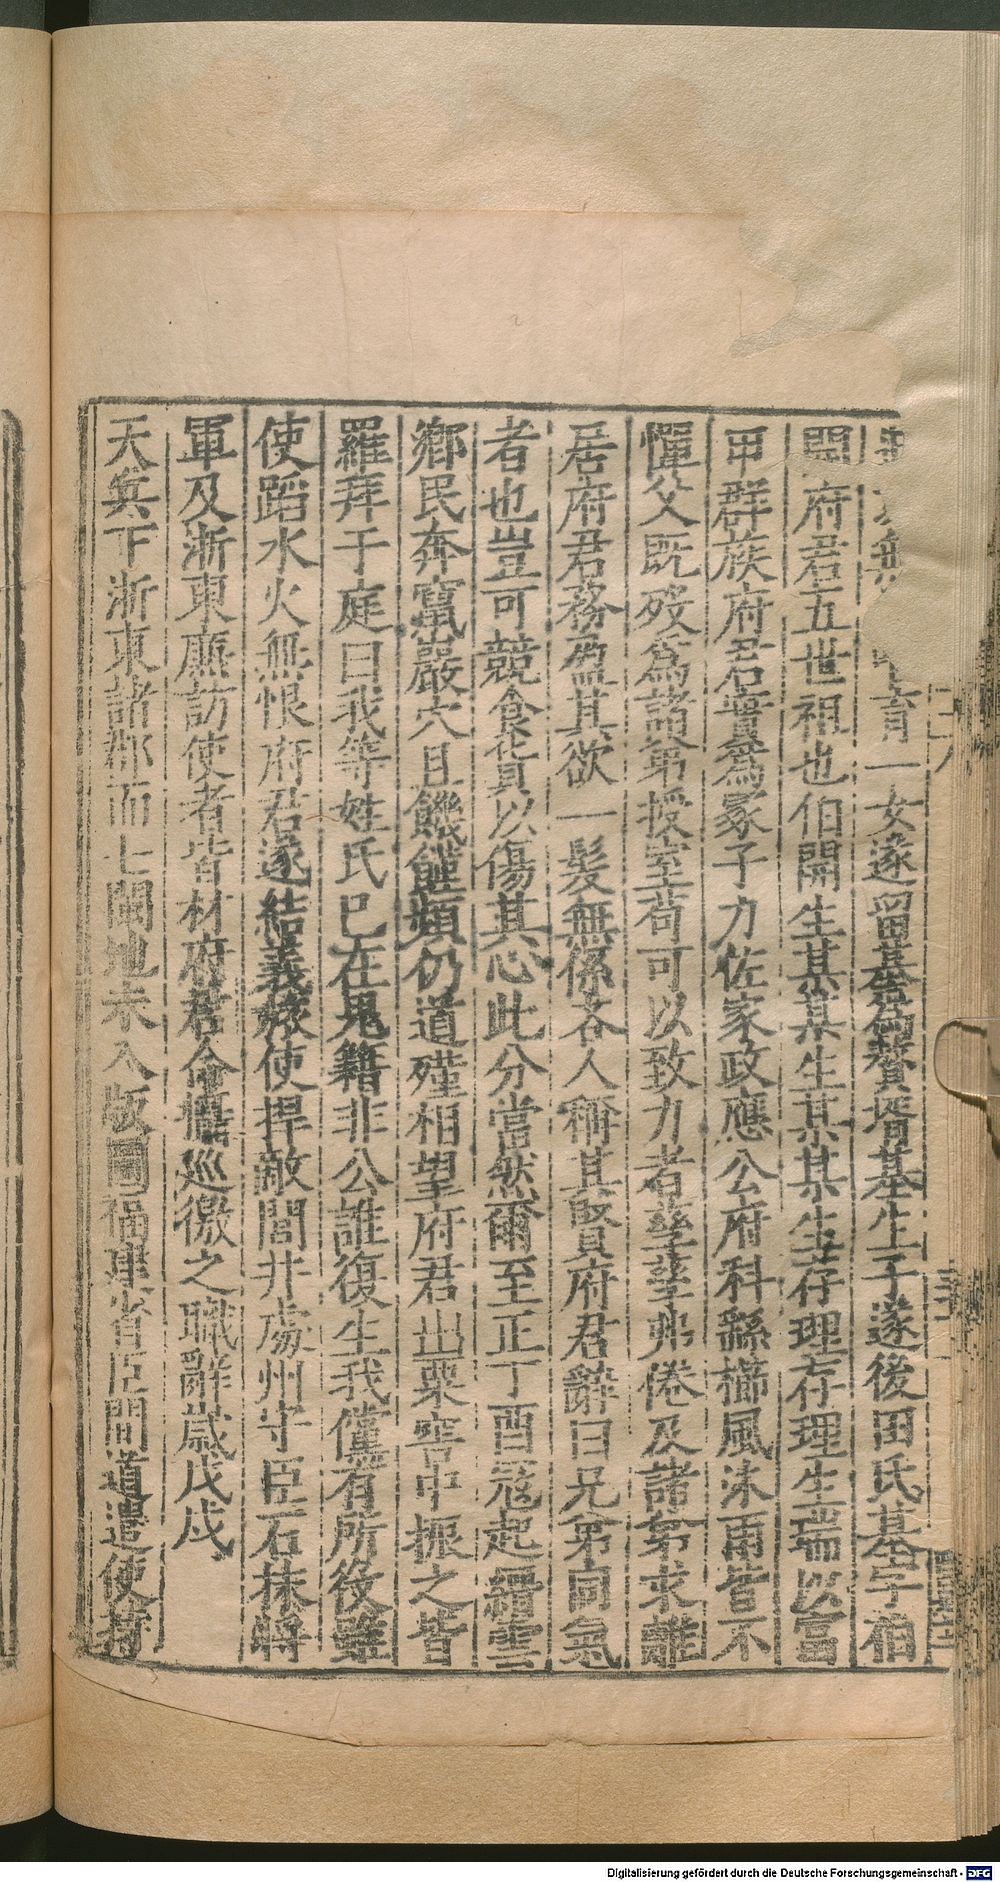 無育一女遂留基爲贅壻基生子遂後田氏基字伯
開府君五世祖也伯開生某某生某某生存理存理生端以富
甲群族府君實爲冢子力佐家政應公府科繇櫛風沐雨皆不
憚父旣歿爲諸第授室苟可以致力者孳孳弗倦及諸第求離
居府君務盈其欲一髮無係吝人稱其賢府君辭曰兄第同氣
者也豈可競食貨以傷其心此分當然爾至正丁酉寇起縉雲
鄉民奔竄巖穴且饑饉頻仍道殣相望府君出粟窖中振之皆
羅拜于庭曰我等姓氏已在鬼籍非公誰復生我儻有所役雖
使蹈水火無恨府君遂結義旅使捍敵閭井處州守臣石抹將
軍及浙東廉訪使者皆材府君令攝巡徼之職辭歲戊戌
天兵下浙東諸郡而七閩地未入版圖福建省臣間道遣使持
Digitalisierung gefördert durch die Deutsche Forschungsgemeinschaft - DFG